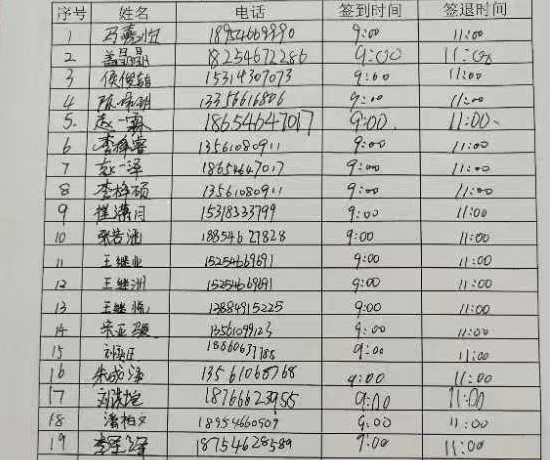 序号 姓名 电话 签到时间 签退时间
1 18954669990 9:00 11:00
2 盖晶晶 18254672286 9:00 11:00
3 侯俊 15314307073 9:00 11:00
4 陈 13356616806 9:00 11:00
5. 赵一霖 18654647017 9:00. 11:00.
6 李梓睿 13561080911 9:00 11:00
7 赵一泽 18654647017 9:00 11:00
8 李梓硕 13561080911 9:00 11:00
9 崔潇月 15318333799 9:00 11:00
10 张若涵 18854627828 9:00 11:00
11 王继业 15254669691 9:00 11:00
12 王继洲 15254669691 9:00 11:00
13 王继 13884915225 9:00 11:00
14 宋亚 13561099123 9:00 11:00
15 18660637788 9:00 11:00
16 朱成泽 13561068768 9:00 11:00
17 刘 18766623955 9:00 11:00
18 潘柏文 18954660509 9:00 11:00
19 李 18754628589 9:00 11:00